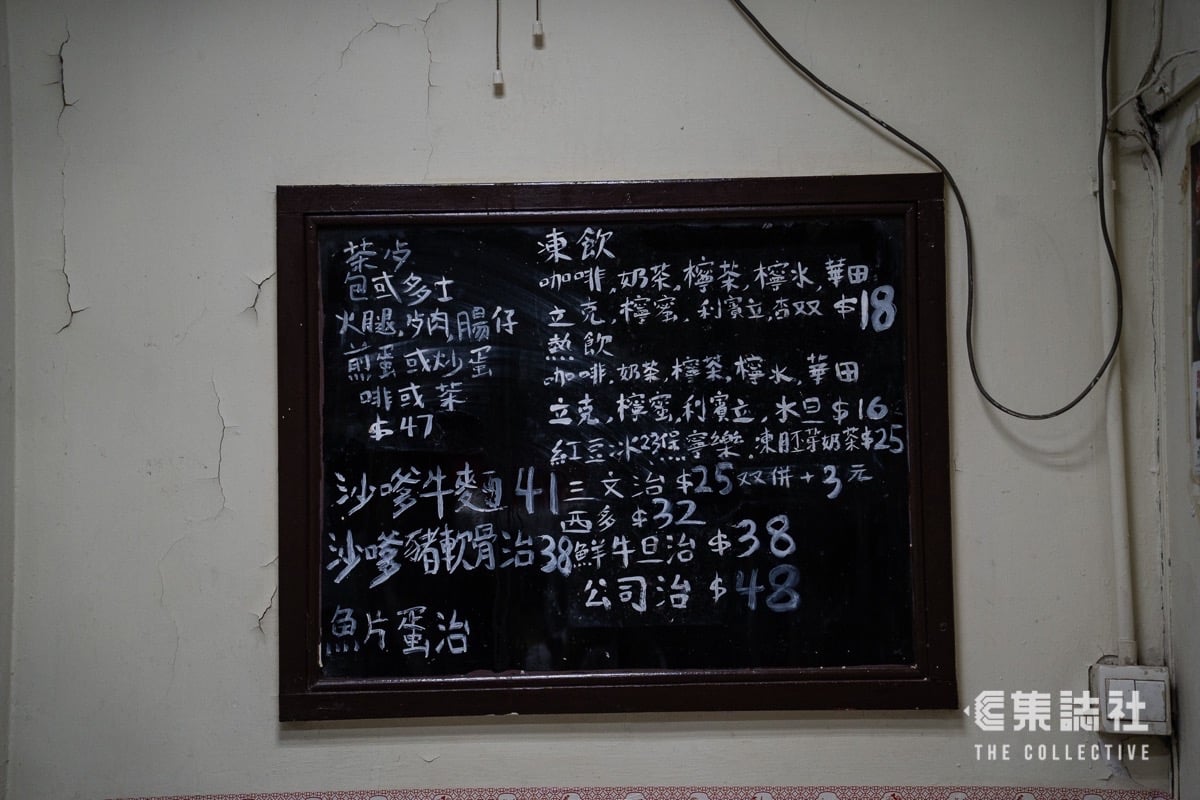 茶歺
包或多士
火腿.歺肉,腸仔
煎蛋或炒蛋
啡或茶
$47
沙嗲牛麵41
沙嗲豬軟骨治38
魚片蛋治
凍飲
咖啡,奶茶,檸茶,檸水,華田
立克,檸蜜,利賓立,杏双 $18
熱飲
咖啡,奶茶,檸茶,檸水,華田
立克,檸蜜,利賓立,水旦 $16
紅豆冰23 寧樂.凍胚芽奶茶$25
三文治 $25双併+3元
西多 $32
鮮牛旦治 $38
公司治 $48
集誌社
THE COLLECTIVE